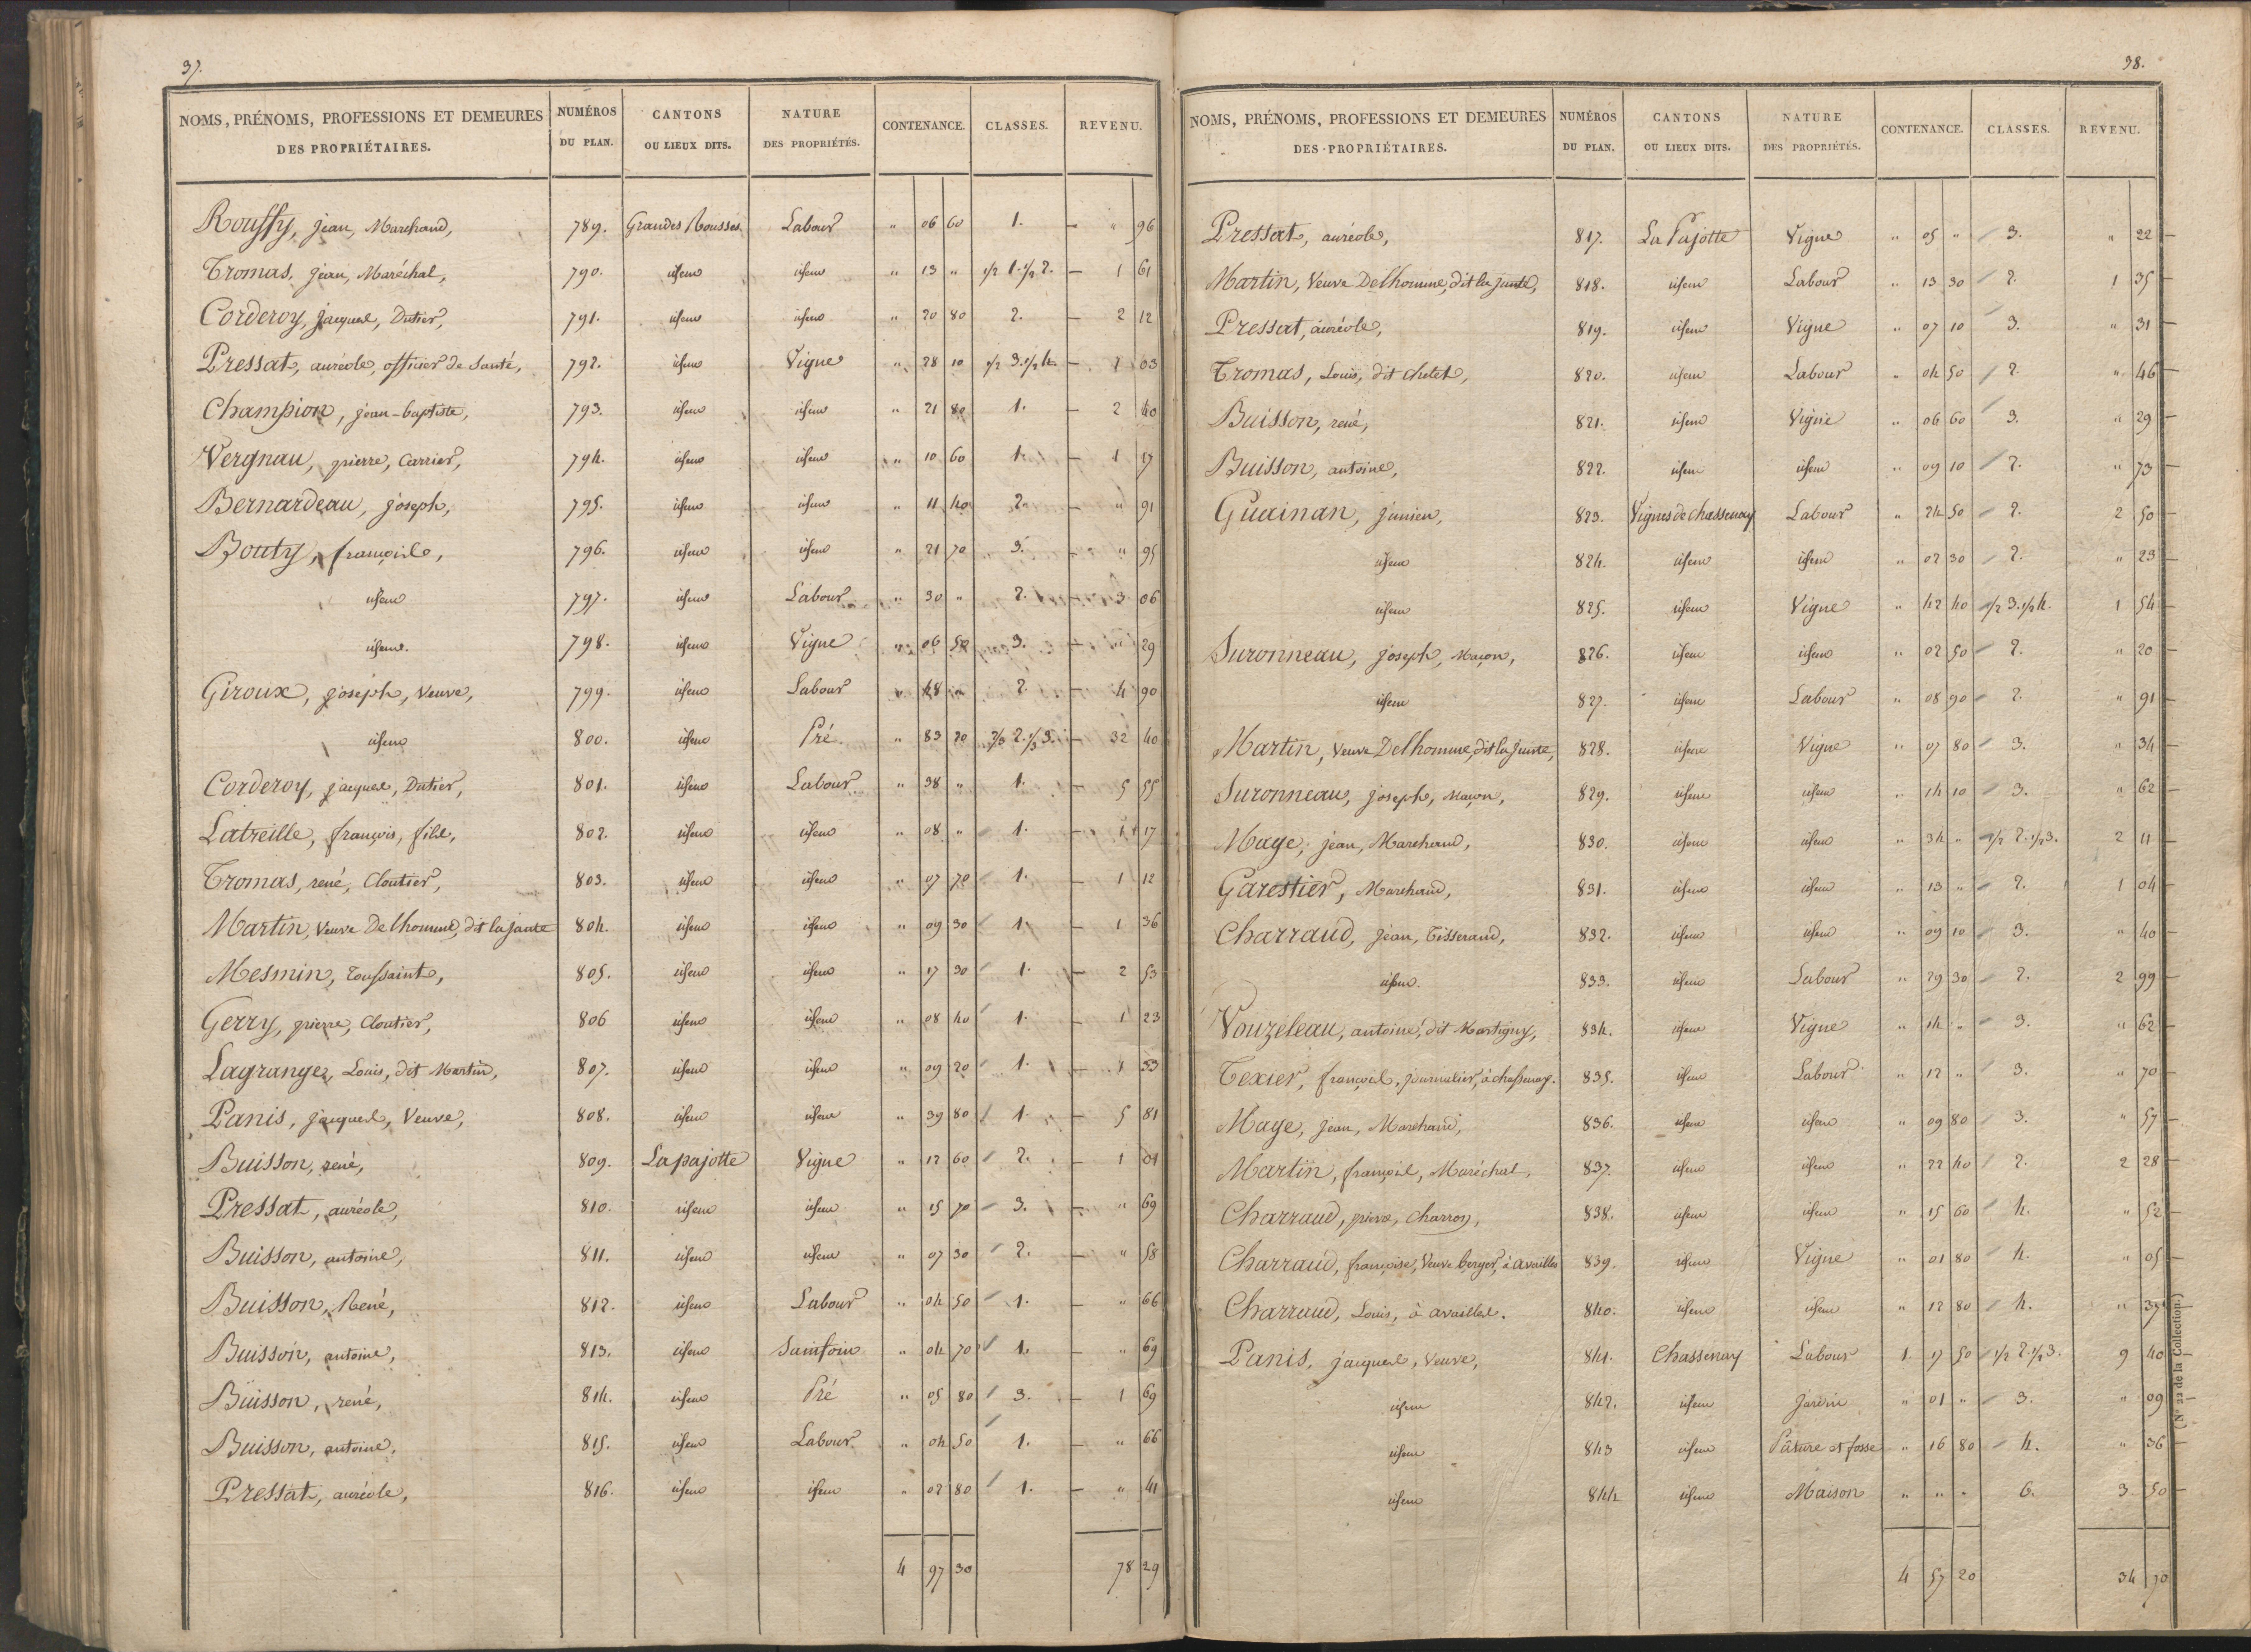 37.
NOMS, PRÉNOMS, PROFESSIONS ET DEMEURES DES PROPRIÉTAIRES. NUMÉROS DU PLAN. CANTONS OU LIEUX DITS. NATURE DES PROPRIÉTÉS. CONTENANCE. CLASSES. REVENU.
Rouffy, jean, Marchand, 789. Grandes Rousses Labour " 06 60 1. — " 96
Tromas, jean, Maréchal, 790. idem idem " 13 " 1/2 1. 1/2 2. — 1 61
Corderoy, jacques, Dutier, 791. idem idem " 20 80 2. — 2 12
Pressat, auréole, officier de Santé, 792. idem Vigne " 28 10 1/2 3. 1/2 4. — 1 03
Champion, jean-baptiste, 793. idem idem " 21 80 1. — 2 40
Vergnau, pierre, Carrier, 794. idem idem " 10 60 1. — 1 17
Bernardeau, joseph, 795. idem idem " 11 40 2. — " 91
Bouty, françoise, 796. idem idem " 21 70 3. — " 95
idem 797. idem Labour " 30 " 2. — 3 06
idem. 798. idem Vigne " 06 50 3. — " 29
Giroux, joseph, Veuve, 799. idem Labour " 48 " 2. — 4 90
idem 800. idem Pré " 83 20 2/3 2. 1/3 3. — 32 40
Corderoy, jacques, Dutier, 801. idem Labour " 38 " 1. — 5 55
Latreille, françois, fils, 802. idem idem " 08 " 1. — 1 17
Tromas, rené, Cloutier, 803. idem idem " 07 70 1. — 1 12
Martin, Veuve Delhomme, dit la jante 804. idem idem " 09 30 1. — 1 36
Mesmin, Toussaint, 805. idem idem " 17 30 1. — 2 53
Gerry, pierre, Cloutier, 806 idem idem " 08 40 1. — 1 23
Lagrange, Louis, dit Martin, 807. idem idem " 09 20 1. — 1 33
Panis, jacques, Veuve, 808. idem idem " 39 80 1. — 5 81
Buisson, rené, 809. La pajotte Vigne " 12 60 2. — 1 01
Pressat, auréole, 810. idem idem " 15 70 3. — " 69
Buisson, antoine, 811. idem idem " 07 30 2. — " 58
Buisson, René, 812. idem Labour " 04 50 1. — " 66
Buisson, antoine, 813. idem Sainfoin " 04 70 1. — " 69
Buisson, rené, 814. idem Pré " 05 80 3. — 1 69
Buisson, antoine, 815. idem Labour " 04 50 1. — " 66
Pressat, auréole, 816. idem idem " 02 80 1. — " 41
4 97 30 78 29
38.
NOMS, PRÉNOMS, PROFESSIONS ET DEMEURES DES PROPRIÉTAIRES. NUMÉROS DU PLAN. CANTONS OU LIEUX DITS. NATURE DES PROPRIÉTÉS. CONTENANCE. CLASSES. REVENU.
Pressat, auréole, 817. La Pajotte Vigne " 05 " 3. " 22
Martin, Veuve Delhomme, dit la jante, 818. idem Labour " 13 30 2. 1 35
Pressat, auréole, 819. idem Vigne " 07 10 3. " 31
Tromas, Louis, dit chetet, 820. idem Labour " 04 50 2. " 46
Buisson, rené, 821. idem Vigne " 06 60 3. " 29
Buisson, antoine, 822. idem idem " 09 10 2. " 73
Guainan, junien, 823. Vignes de chassenay Labour " 24 50 2. 2 50
idem 824. idem idem " 02 30 2. " 23
idem 825. idem Vigne " 42 40 1/2 3. 1/2 4. 1 54
Suronneau, joseph, Maçon, 826. idem idem " 02 50 2. " 20
idem 827. idem Labour " 08 90 2. " 91
Martin, Veuve Delhomme, dit la Jante, 828. idem Vigne " 07 80 3. " 34
Suronneau, joseph, Maçon, 829. idem idem " 14 10 3. " 62
Maye, jean, Marchand, 830. idem idem " 34 " 1/2 2. 1/2 3. 2 11
Garestier, Marchand, 831. idem idem " 13 " 2. 1 04
Charraud, Jean, Tisserand, 832. idem idem " 09 10 3. " 40
idem. 833. idem Labour " 29 30 2. 2 99
Vouzeleau, antoine, dit Martigny, 834. idem Vigne " 14 " 3. " 62
Texier, françois, journalier, à chassenay. 835. idem Labour " 12 " 3. " 70
Maye, Jean, Marchand, 836. idem idem " 09 80 3. " 57
Martin, françois, Maréchal, 837. idem idem " 22 40 2. 2 28
Charraud, pierre, Charron, 838. idem idem " 15 60 4. " 52
Charraud, françoise, Veuve berger, à availles 839. idem Vigne " 01 80 4. " 05
Charraud, Louis, à availles. 840. idem idem " 12 80 4. " 37
Panis, jacques, Veuve, 841. Chassenay Labour 1 17 50 1/2 2. 1/2 3. 9 40
idem 842. idem Jardin " 01 " 3. " 09
idem 843 idem Pâture et fosse " 16 80 4. " 36
idem 844 idem Maison " " " 6. 3 50
4 57 20 34 70
(N° 22 de la Collection.)